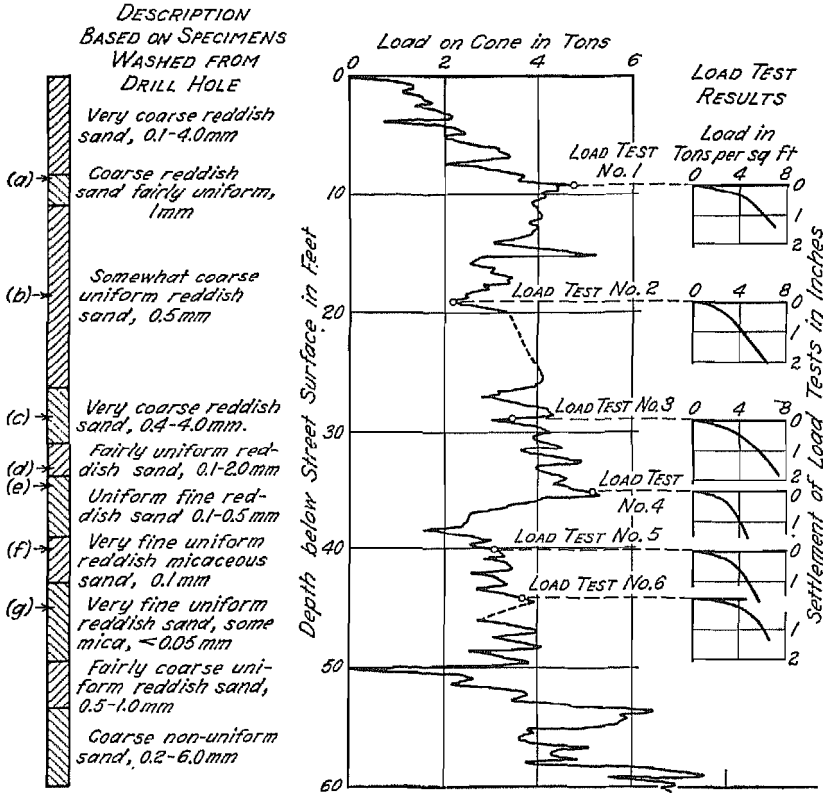 DESCRIPTION
BASED ON SPECIMENS
WASHED FROM
DRILL HOLE
Very coarse reddish
sand, 0.1-4.0mm
(a)
Coarse reddish
sand fairly uniform,
1mm
(b)
Somewhat coarse
uniform reddish
sand, 0.5mm
(c)
Very coarse reddish
sand, 0.4-4.0mm.
(d)
Fairly uniform red-
dish sand, 0.1-2.0mm
(e)
Uniform fine red-
dish sand 0.1-0.5mm
(f)
Very fine uniform
reddish micaceous
sand, 0.1mm
(g)
Very fine uniform
reddish sand, some
mica, <0.05mm
Fairly coarse uni-
form reddish sand,
0.5-1.0mm
Coarse non-uniform
sand, 0.2-6.0mm
Load on Cone in Tons
0 2 4 6
Depth below Street Surface in Feet
0
10
20
30
40
50
60
LOAD TEST
No.1
LOAD TEST No.2
LOAD TEST No.3
LOAD TEST
No.4
LOAD TEST No.5
LOAD TEST No.6
LOAD TEST
RESULTS
Load in
Tons per sq ft
0 4 8
0
1
2
0 4 8
0
1
2
0 4 8
0
1
2
0
1
0
1
1
2
Settlement of Load Tests in Inches